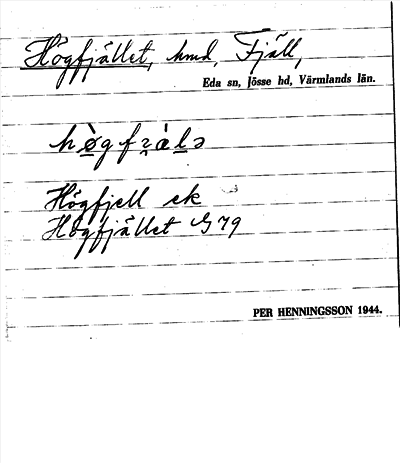 Högfjället, hmd, Fjäll,
Eda sn, Jösse hd, Värmlands län.
Högfjell ek
Högfjället G 79
PER HENNINGSSON 1944.